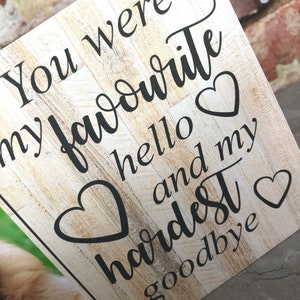 You were
my favourite
hello
and my
hardest
goodbye